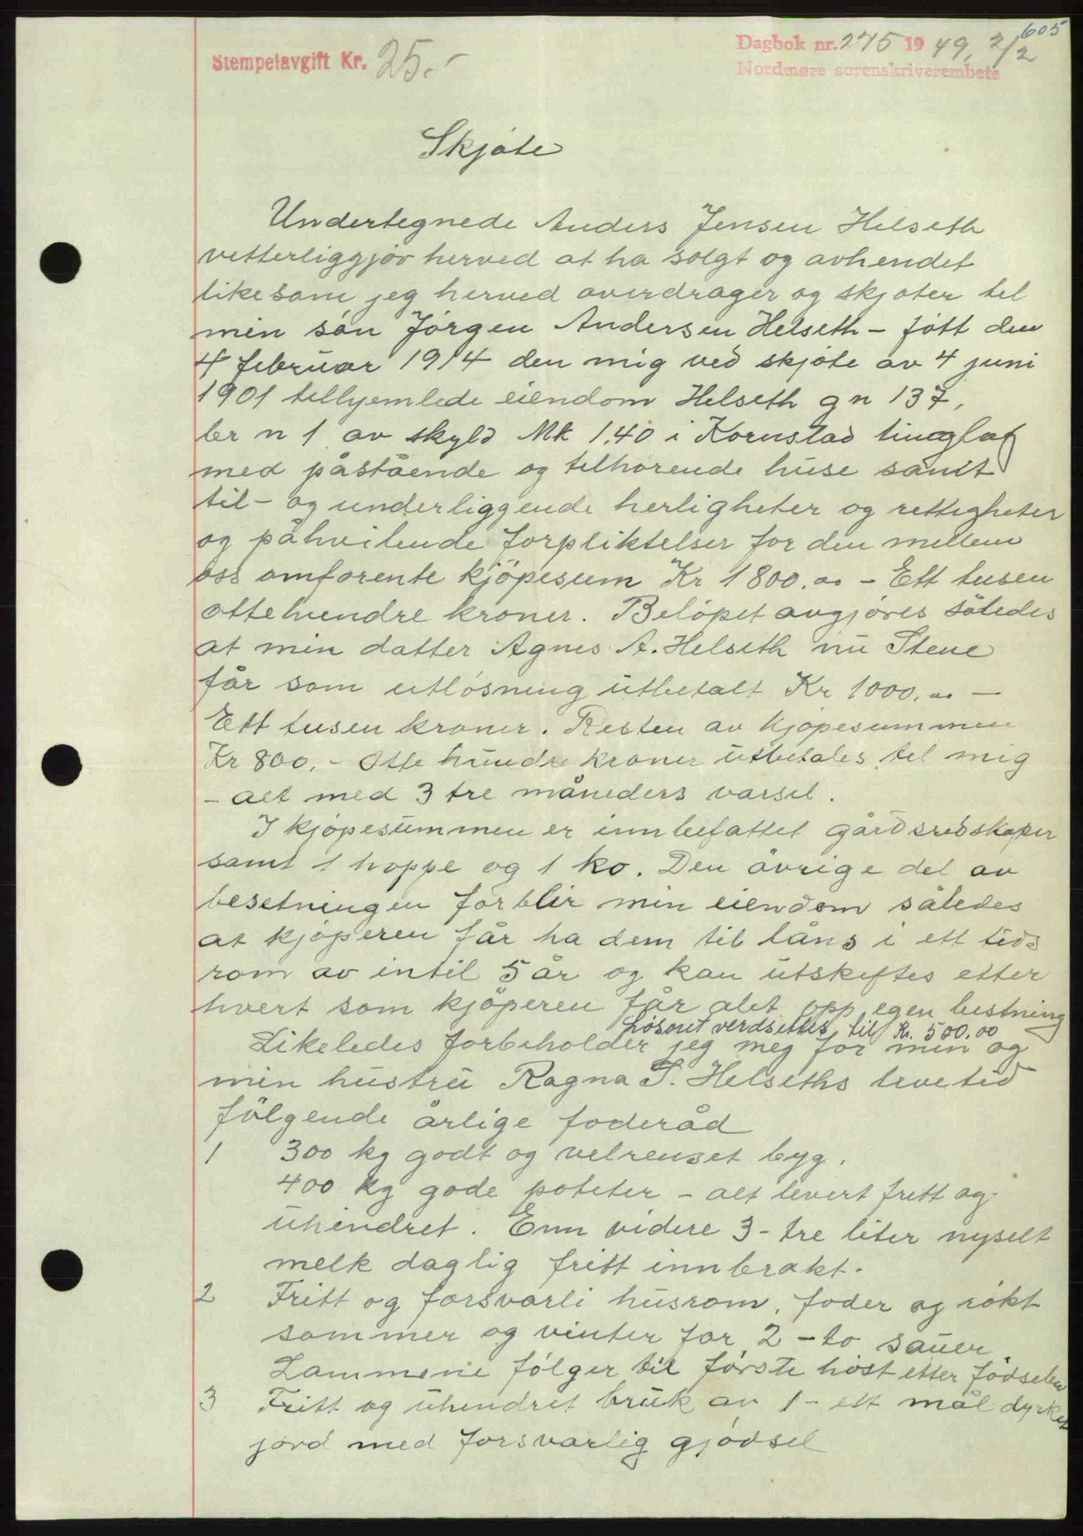 605
Stempelavgift Kr. 25.-
Dagbok nr. 275 1949, 2/2
Nordmøre sorenskriverembete
Skjøte
Undertegnede Anders Jensen Helseth
vetterliggjør herved at ha solgt og avhendet
likesom jeg herved overdrager og skjøter til
min søn Jørgen Andersen Helseth - født den
4 februar 1914 den mig ved skjøte av 4 juni
1901 tilhjemlede eiendom Helseth g n 137,
br n 1 av skyld Mk 1.40 i Kornstad tinglag
med påstående og tilhørende huse samt
til- og underliggende herligheter og rettigheter
og påhvilende forpliktelser for den mellem
oss omforente kjöpesum Kr 1800.00 - Ett tusen
ottehundre kroner. Belöpet avgjøres således
at min datter Agnes A. Helseth nu Stene
får som utløsning utbetalt Kr 1000.00 -
Ett tusen kroner. Resten av kjöpesummen
Kr 800.- Otte hundre kroner utbetales til mig
- alt med 3 tre måneders varsel.
I kjöpesummen er innbefattet gårdsredskaper
samt 1 hoppe og 1 ko. Den övrige del av
besetningen forblir min eiendom således
at kjöperen får ha dem til låns i ett tids
rom av intil 5 år og kan utskiftes etter
hvert som kjöperen får alet opp egen bestning
Løsøret verdsettes til Kr. 500.00
Likeledes forbeholder jeg meg for min og
min hustru Ragna S. Helseths levetid
fölgende årlige foderåd
1 300 kg godt og velrenset byg.
400 kg gode poteter - alt levert fritt og
uhindret. Enn videre 3 - tre liter nyselt
melk daglig fritt innbrakt.
2 Fritt og forsvarli husrom, foder og røkt
sommer og vinter for 2 - to sauer
Lammene følger til første høst etter fødselen
3 Fritt og uhindret bruk av 1 - ett mål dyrket
jord med forsvarlig gjödsel